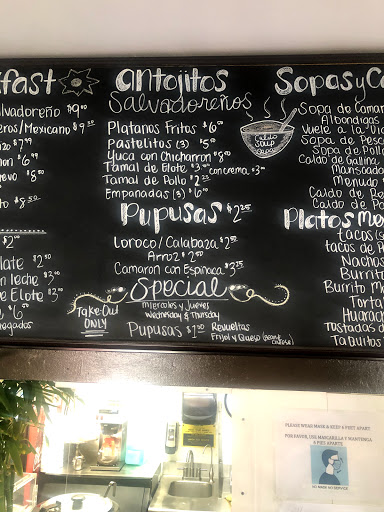 kfast
alvadoreño $9.00
eros/Mexicano $9.50
$7.99
$6.99
$8.00
$8.50
$2.00
late $2.50
on leche $3.00
e Elote $3.00
antojitos
Salvadoreños
Platanos Fritos $6.00
Pastelitos (3) $5.00
Yuca con Chicharron $8.00
Tamal de Elote $3.00 con crema $3.50
Tamal de Pollo $2.25
Empanadas (3) $6.00
Pupusas $2.25
Loroco/Calabaza $2.50
Arroz $2.50
Camaron con Espinaca $3.25
Special
Take-Out
ONLY
Miercoles y Jueves
Wednesday & Thursday
Pupusas $1.50 Revueltas
Frijol y Queso (Bean & Cheese)
Caldo
Soup
Sopas y Ca
Sopa de Camar
Albondigas
Vuelve a la Vi
Sopa de Pesc
Sopa de Poll
Caldo de Gallina
Mariseco
Menudo
Caldo de R
Caldo de Po
Platos Me
tacos (s
tacos de
Nachos
Burrito
Burrito Mo
Torta
Huarach
Tostadas d
Taquitos
PLEASE WEAR MASK & KEEP 6 FEET APART
POR FAVOR, USE MASCARILLA Y MANTENGA
6 FEET APARTE
NO MASK NO SERVICE